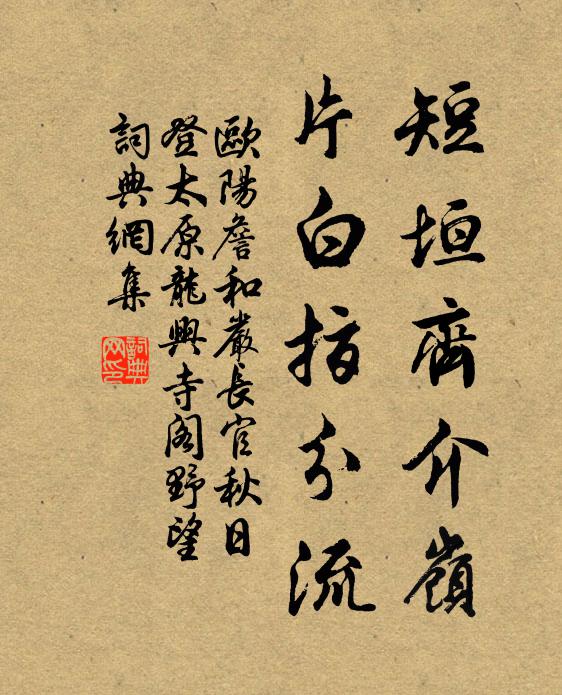 短垣齊介嶺
片白指分流
歐陽詹和嚴長官秋日
登太原龍興寺閣野望
詞典網集
詞典网印